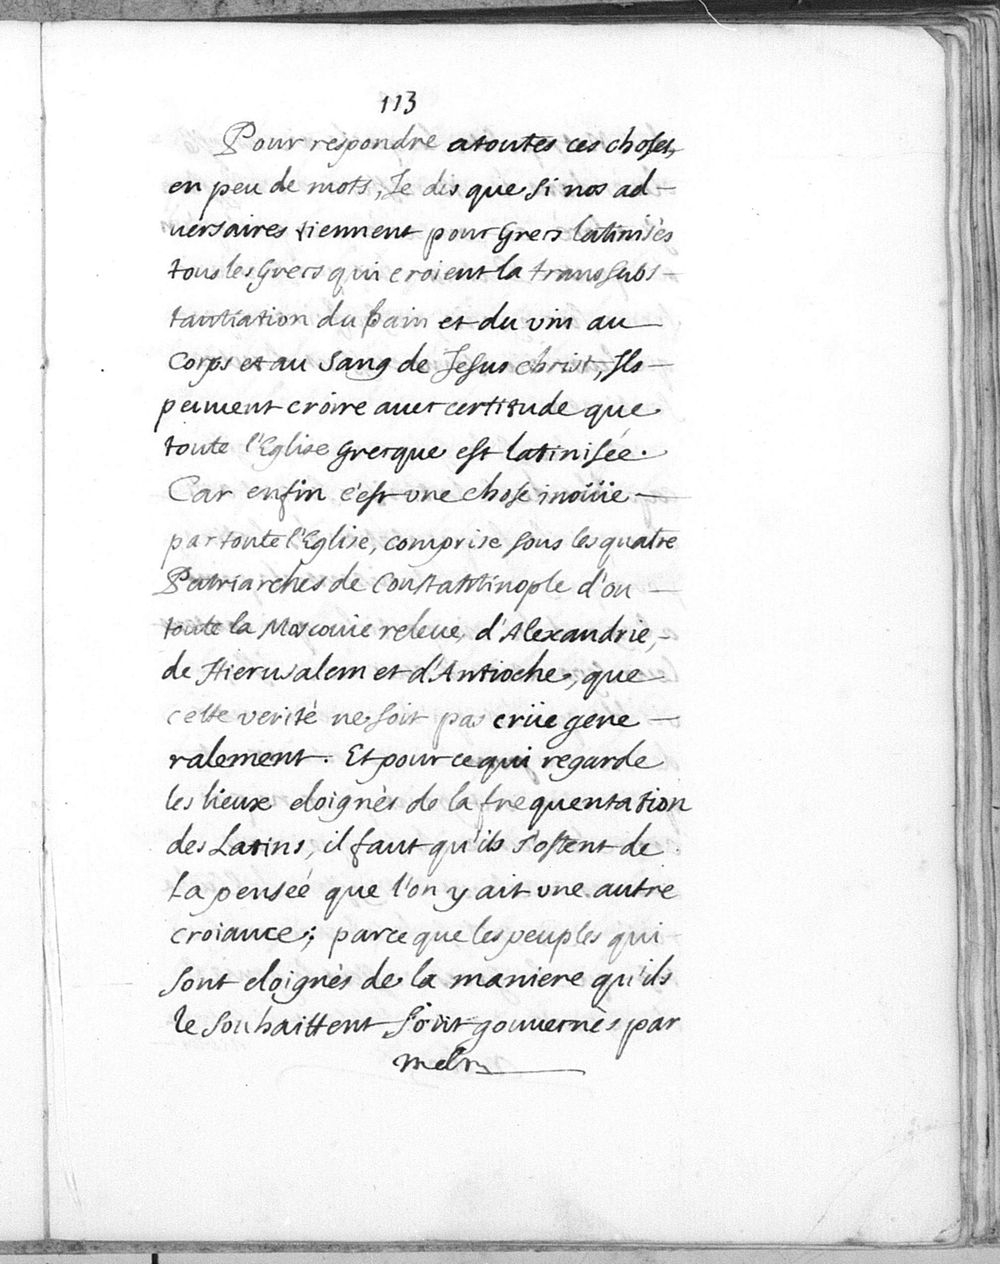 113
Pour respondre a toutes ces choses,
en peu de mots, Je dis que si nos ad-
uersaires tiennent pour Grecs latinisés
tous les Grecs qui croient la transsubs-
tantiation du pain et du vin au
Corps et au Sang de Jesus christ, Ils
peuuent croire auec certitude que
toute l'Eglise Grecque est latinisée.
Car enfin c'est vne chose inoüie
par toute l'Eglise, comprise sous les quatre
Patriarches de Constantinople d'ou
toute la Moscouie releue, d'Alexandrie,
de Hierusalem et d'Antioche, que
cette verité ne soit pas crüe gene
ralement. Et pour ce qui regarde
les lieux eloignés de la frequentation
des Latins, il faut qu'ils s'ostent de
la penseé que l'on y ait vne autre
croiance; parce que les peuples qui
sont eloignés de la maniere qu'ils
le souhaittent sont gouuernés par